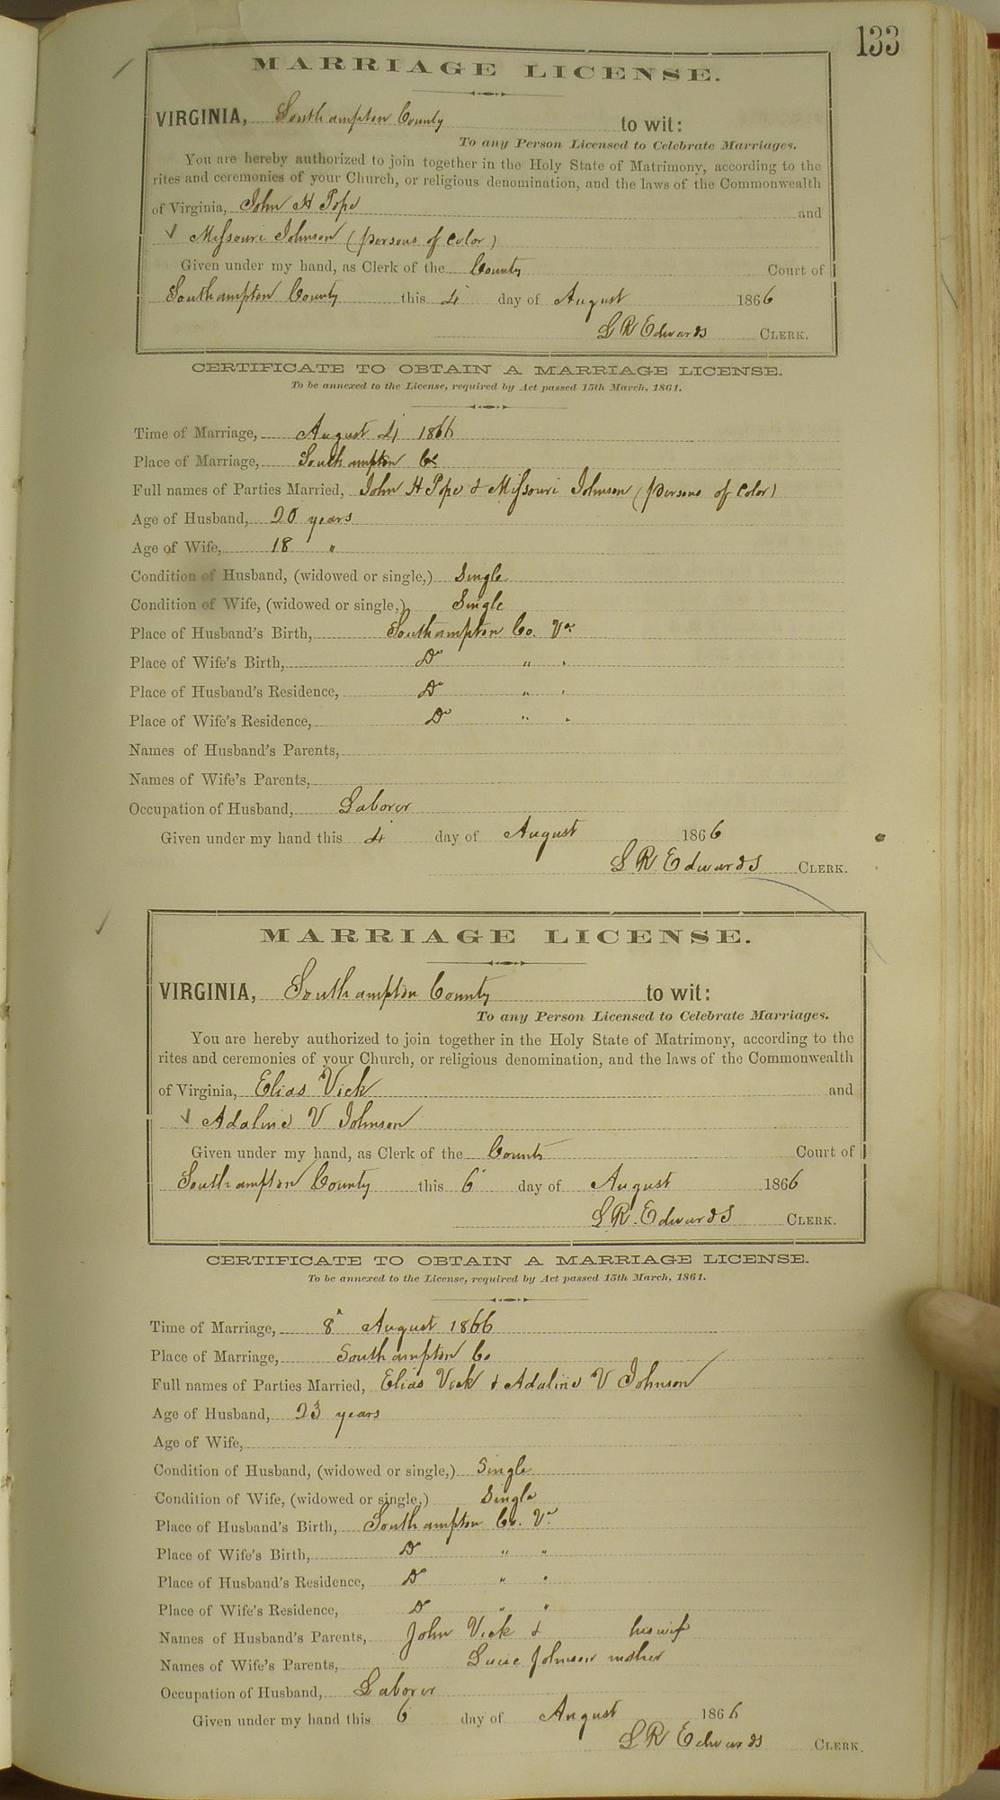 133
MARRIAGE LICENSE.
VIRGINIA, Southampton County to wit:
To any Person Licensed to Celebrate Marriages.
You are hereby authorized to join together in the Holy State of Matrimony, according to the
rites and ceremonies of your Church, or religious denomination, and the laws of the Commonwealth
of Virginia, John H Pope and
✓ Missouri Johnson (persons of Color)
Given under my hand, as Clerk of the County Court of
Southampton County this 4 day of August 1866
L R Edwards CLERK.
CERTIFICATE TO OBTAIN A MARRIAGE LICENSE.
To be annexed to the License, required by Act passed 15th March, 1861.
Time of Marriage, August 4 1866
Place of Marriage, Southampton Co
Full names of Parties Married, John H Pope & Missouri Johnson (persons of Color)
Age of Husband, 20 years
Age of Wife, 18 "
Condition of Husband, (widowed or single,) Single
Condition of Wife, (widowed or single,) Single
Place of Husband's Birth, Southampton Co. Va.
Place of Wife's Birth, Do " "
Place of Husband's Residence, Do " "
Place of Wife's Residence, Do " "
Names of Husband's Parents,
Names of Wife's Parents,
Occupation of Husband, Laborer
Given under my hand this 4 day of August 1866
L R Edwards CLERK.
MARRIAGE LICENSE.
VIRGINIA, Southampton County to wit:
To any Person Licensed to Celebrate Marriages.
You are hereby authorized to join together in the Holy State of Matrimony, according to the
rites and ceremonies of your Church, or religious denomination, and the laws of the Commonwealth
of Virginia, Elias Vick and
✓ Adaline V Johnson
Given under my hand, as Clerk of the County Court of
Southampton County this 6 day of August 1866
L R. Edwards CLERK.
CERTIFICATE TO OBTAIN A MARRIAGE LICENSE.
To be annexed to the License, required by Act passed 15th March, 1861.
Time of Marriage, 8 August 1866
Place of Marriage, Southampton Co
Full names of Parties Married, Elias Vick & Adaline V Johnson
Age of Husband, 23 years
Age of Wife,
Condition of Husband, (widowed or single,) Single
Condition of Wife, (widowed or single,) Single
Place of Husband's Birth, Southampton Co. Va.
Place of Wife's Birth, Do " "
Place of Husband's Residence, Do " "
Place of Wife's Residence, Do " "
Names of Husband's Parents, John Vick & his wife
Names of Wife's Parents, Johnson mother
Occupation of Husband, Laborer
Given under my hand this 6 day of August 1866
L R Edwards CLERK.